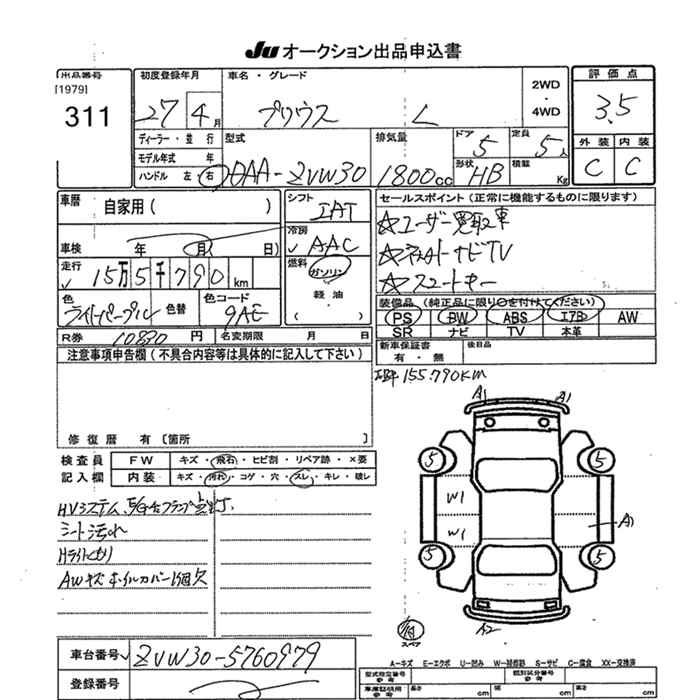 JU オークション出品申込書
出品番号
[1979]
311
初度登録年月
27年4月
車名・グレード
プリウス L
2WD
・
4WD
評価点
3.5
外装 内装
C C
ディーラー・並行
モデル年式 年
ハンドル 左・右
型式
DAA-ZVW30
排気量
1800cc
ドア
5
定員
5人
形状
HB
積載
Kg
車歴
自家用( )
シフト
IAT
セールスポイント(正常に機能するものに限ります)
☆ユーザー買取車
ナビTV
☆スマートキー
車検 年 月 日)
冷房
AAC
走行
15万5千790km
燃料
ガソリン
・
軽油
( )
色
ライトパープル
色替
色コード
9AE
装備品(純正品に限り○を付けてください)
PS PW ABS エアB AW
SR ナビ TV 本革
R券 10830円 名変期限 月 日
新車保証書
有・無
後日品
注意事項申告欄(不具合内容等は具体的に記入して下さい)
155.790KM
修復歴 有〔箇所 〕
検査員
記入欄
FW キズ・飛石・ヒビ割・リペア跡・×要
内装 キズ・汚れ・コゲ・穴・スレ・キレ・破レ
A1 A1
5 5
W1
W1 A1
5 5
A2
HVシステム
シート汚れ
Hライトくもり
AWキズ ホイルカバー1個欠
スペア
車台番号 ZVW30-5760979
登録番号
A-キズ E-エクボ U-凹み W-補修跡 S-サビ C-腐食 XX-交換済
型式指定番号
参考
類別区分番号
参考
長さ cm 幅 cm 高さ cm